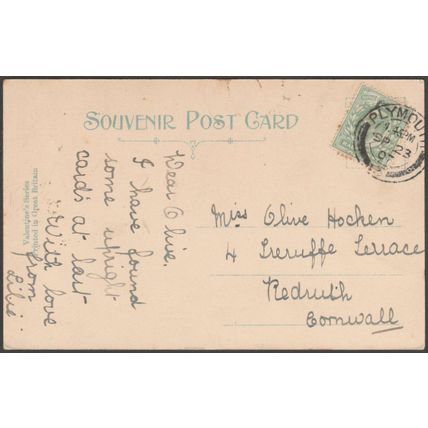 SOUVENIR POST CARD
Valentine's Series
Printed in Great Britain
Dear Olive.
I have found
some upright
cards at last
With love
from
Lilie.
Miss Olive Hocken
4 Treruffe Terrace
Redruth
Cornwall
PLYMOUTH
SP 23